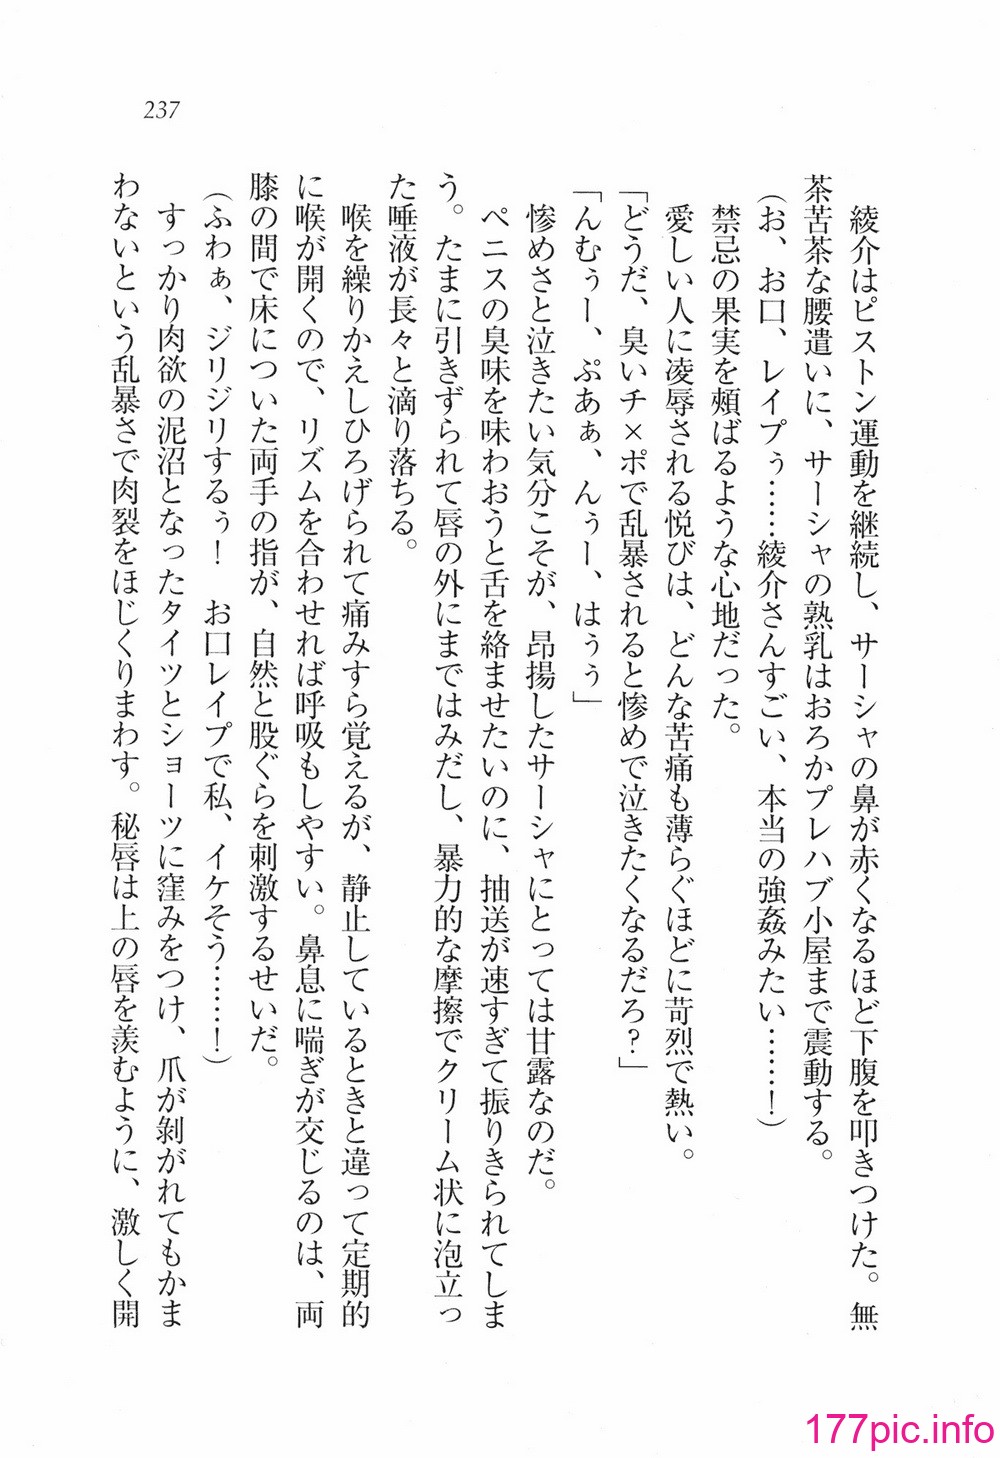 237
綾介はピストン運動を継続し、サーシャの鼻が赤くなるほど下腹を叩きつけた。無
茶苦茶な腰遣いに、サーシャの熟乳はおろかプレハブ小屋まで震動する。
(お、お口、レイプぅ……綾介さんすごい、本当の強姦みたい……!)
禁忌の果実を頰ばるような心地だった。
愛しい人に凌辱される悦びは、どんな苦痛も薄らぐほどに苛烈で熱い。
「どうだ、臭いチ×ポで乱暴されると惨めで泣きたくなるだろ?」
「んむぅー、ぷあぁ、んぅー、はぅぅ」
惨めさと泣きたい気分こそが、昂揚したサーシャにとっては甘露なのだ。
ペニスの臭味を味わおうと舌を絡ませたいのに、抽送が速すぎて振りきられてしま
う。たまに引きずられて唇の外にまではみだし、暴力的な摩擦でクリーム状に泡立っ
た唾液が長々と滴り落ちる。
喉を繰りかえしひろげられて痛みすら覚えるが、静止しているときと違って定期的
に喉が開くので、リズムを合わせれば呼吸もしやすい。鼻息に喘ぎが交じるのは、両
膝の間で床についた両手の指が、自然と股ぐらを刺激するせいだ。
(ふわぁ、ジリジリするぅ! お口レイプで私、イケそう……!)
すっかり肉欲の泥沼となったタイツとショーツに窪みをつけ、爪が剝がれてもかま
わないという乱暴さで肉裂をほじくりまわす。秘唇は上の唇を羨むように、激しく開
177pic.info